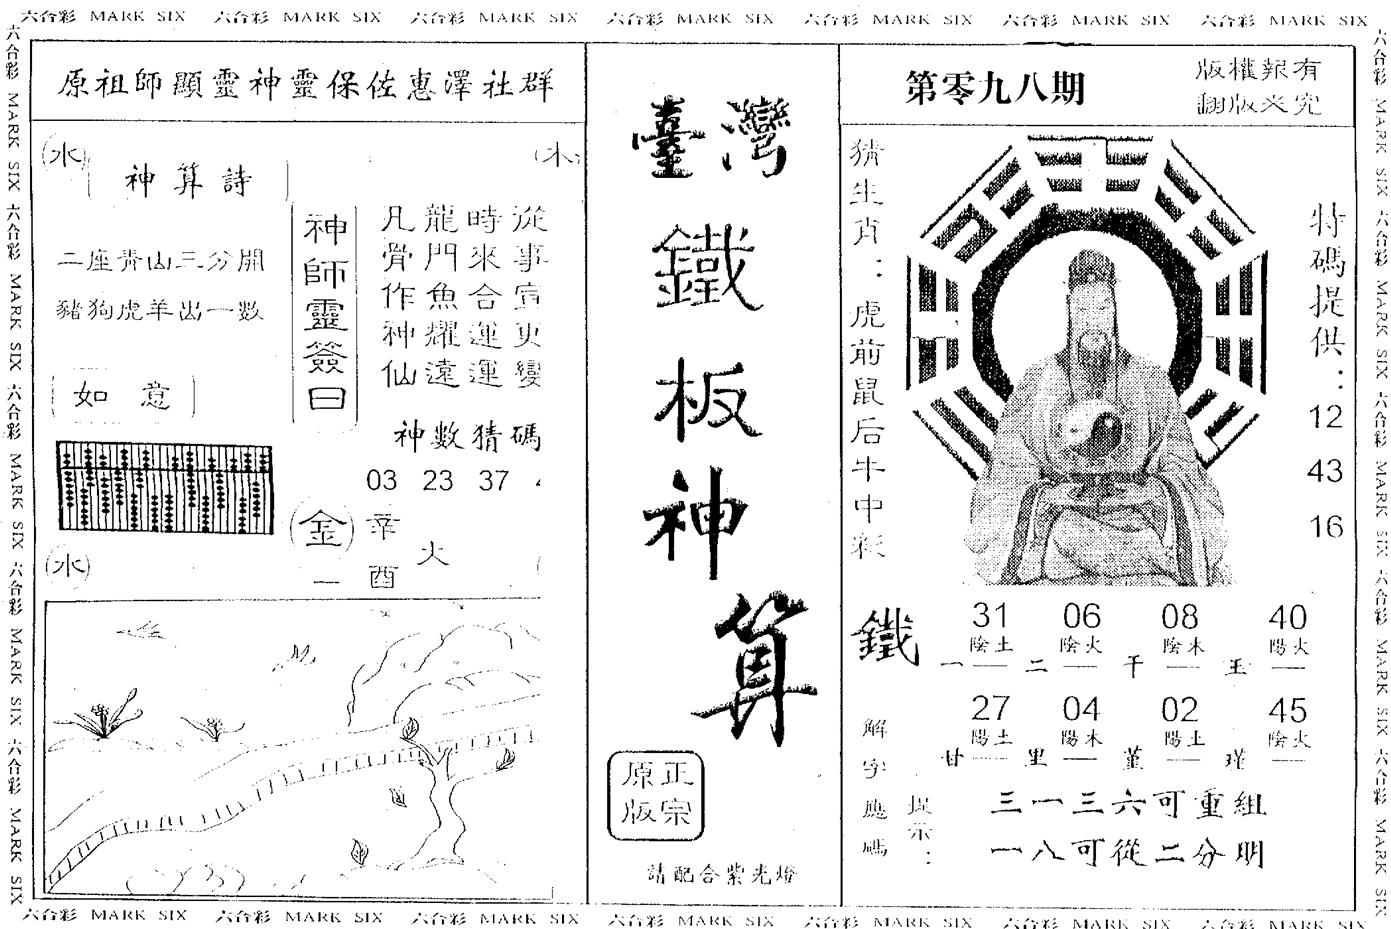 六合彩 MARK SIX 六合彩 MARK SIX 六合彩 MARK SIX 六合彩 MARK SIX 六合彩 MARK SIX 六合彩 MARK SIX 六合彩 MARK SIX
原祖師顯靈神靈保佐惠澤社群
(水)
神算詩
二座青山三分開
豬狗虎羊出一数
如意
(水)
神師靈簽曰
從事宣更變
時來合運運
龍門魚耀遠
凡骨作神仙
神數猜碼
03 23 37
(金)
辛酉
火
臺灣
鐵板神算
正宗
原版
請配合紫光燈
第零九八期
版權報有
翻版必究
猜生肖：虎前鼠后牛中彩
特碼提供：12 43 16
鐵
31 06 08 40
陰土 陰火 陰木 陽火
一 二 千 玉
27 04 02 45
陽土 陽木 陽土 陰火
甘 里 董 瑾
解字應碼
提示：
三一三六可重組
一八可從二分明
六合彩 MARK SIX 六合彩 MARK SIX 六合彩 MARK SIX 六合彩 MARK SIX 六合彩 MARK SIX 六合彩 MARK SIX 六合彩 MARK SIX
六合彩 MARK SIX 六合彩 MARK SIX 六合彩 MARK SIX 六合彩 MARK SIX 六合彩 MARK SIX
六合彩 MARK SIX 六合彩 MARK SIX 六合彩 MARK SIX 六合彩 MARK SIX 六合彩 MARK SIX